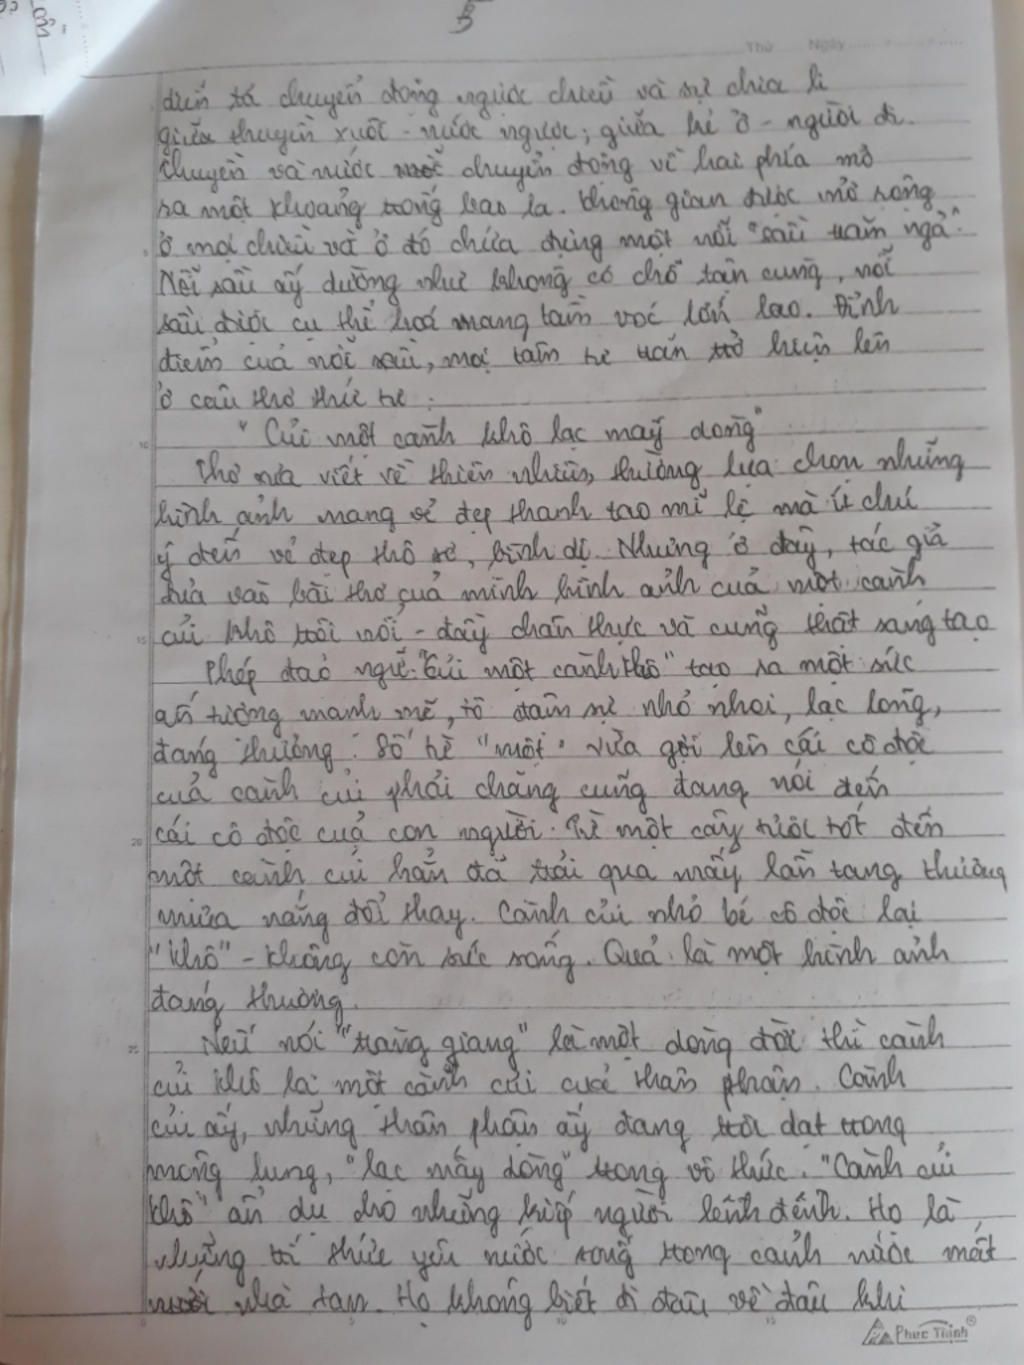 5
Thứ Ngày
diễn tả chuyển động ngược chiều và sự chia li
giữa thuyền xuôi - nước ngược; giữa kẻ ở - người đi.
Thuyền và nước chuyển động về hai phía mở
ra một khoảng trống bao la. Không gian được mở rộng
ở mọi chiều và ở đó chứa đựng một nỗi "sầu trăm ngả".
Nỗi sầu ấy dường như không có chỗ tận cùng, nỗi
sầu được cụ thể hoá mang tầm vóc lớn lao. Đỉnh
điểm của nỗi sầu, mọi tâm tư hiện lên
ở câu thơ thứ tư:
"Củi một cành khô lạc mấy dòng"
Thơ xưa viết về thiên nhiên, thường lựa chọn những
hình ảnh mang vẻ đẹp thanh tao mĩ lệ mà ít chú
ý đến vẻ đẹp thô sơ, bình dị. Nhưng ở đây, tác giả
đưa vào bài thơ của mình hình ảnh của một cành
củi khô trôi nổi - đầy chân thực và cũng thật sáng tạo
Phép đảo ngữ "Củi một cành khô" tạo ra một sức
ấn tượng mạnh mẽ, tô đậm sự nhỏ nhoi, lạc lõng,
đáng thương. Số từ "một" vừa gợi lên cái cô độc
của cành củi phải chăng cũng đang nói đến
cái cô độc của con người. Từ một cây tươi tốt đến
một cành củi hẳn đã trải qua mấy lần tang thương
mưa nắng đổi thay. Cành củi nhỏ bé cô độc lại
"khô" - không còn sức sống. Quả là một hình ảnh
đáng thương.
Nếu nói "tràng giang" là một dòng đời thì cành
củi khô là một cành củi của thân phận. Cành
củi ấy, những thân phận ấy đang trôi dạt trong
mông lung, "lạc mấy dòng" trong vô thức. "Cành củi
khô" ẩn dụ cho những kiếp người lênh đênh. Họ là
những trí thức yêu nước sống trong cảnh nước mất
nhà tan. Họ không biết đi đâu về đâu khi
Phuc Thinh